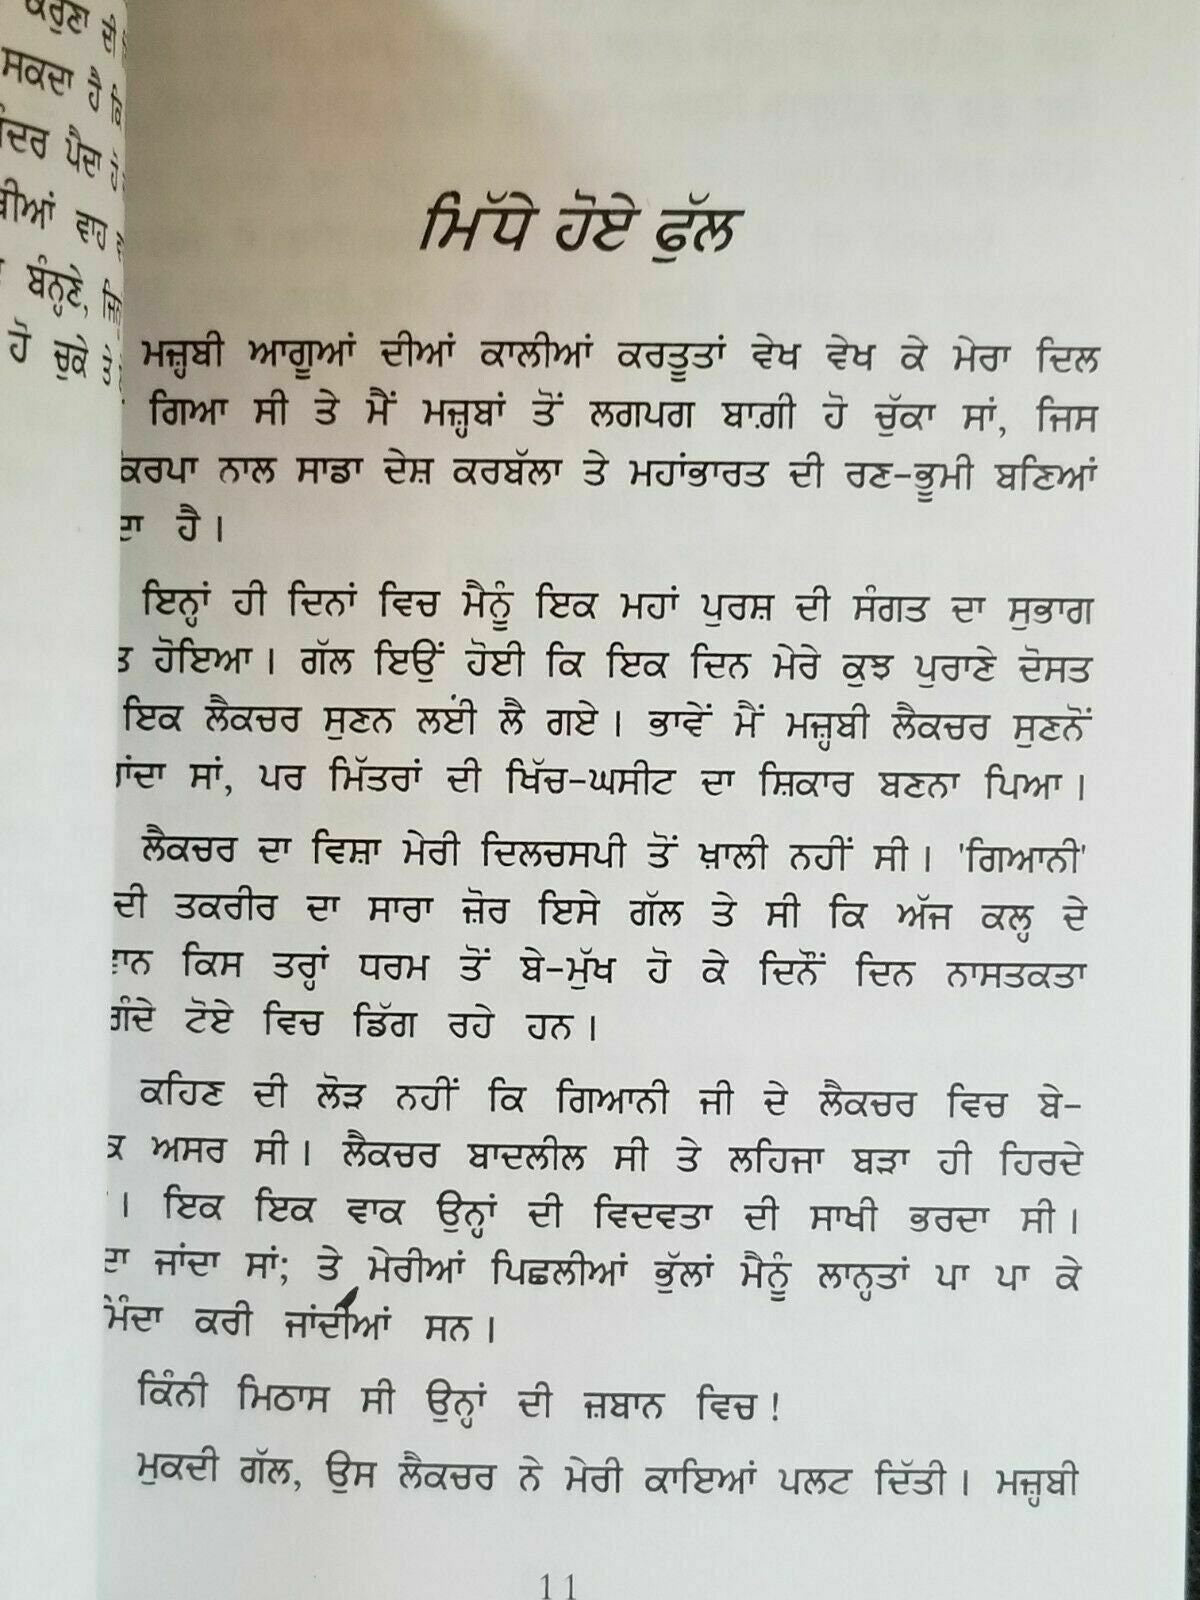 ਸਕਦਾ ਹੈ ਕਿ
ਪੈਦਾ
ਵਾਹ
ਬੰਨ੍ਹਣੇ,
ਹੋ ਚੁਕੇ ਤੇ
ਮਿੱਧੇ ਹੋਏ ਫੁੱਲ
ਮਜ਼੍ਹਬੀ ਆਗੂਆਂ ਦੀਆਂ ਕਾਲੀਆਂ ਕਰਤੂਤਾਂ ਵੇਖ ਵੇਖ ਕੇ ਮੇਰਾ ਦਿਲ
ਗਿਆ ਸੀ ਤੇ ਮੈਂ ਮਜ਼੍ਹਬਾਂ ਤੋਂ ਲਗਪਗ ਬਾਗ਼ੀ ਹੋ ਚੁੱਕਾ ਸਾਂ, ਜਿਸ
ਕਿਰਪਾ ਨਾਲ ਸਾਡਾ ਦੇਸ਼ ਕਰਬੱਲਾ ਤੇ ਮਹਾਂਭਾਰਤ ਦੀ ਰਣ-ਭੂਮੀ ਬਣਿਆਂ
ਹੈ।
ਇਨ੍ਹਾਂ ਹੀ ਦਿਨਾਂ ਵਿਚ ਮੈਨੂੰ ਇਕ ਮਹਾਂ ਪੁਰਸ਼ ਦੀ ਸੰਗਤ ਦਾ ਸੁਭਾਗ
ਹੋਇਆ। ਗੱਲ ਇਉਂ ਹੋਈ ਕਿ ਇਕ ਦਿਨ ਮੇਰੇ ਕੁਝ ਪੁਰਾਣੇ ਦੋਸਤ
ਇਕ ਲੈਕਚਰ ਸੁਣਨ ਲਈਂ ਲੈ ਗਏ। ਭਾਵੇਂ ਮੈਂ ਮਜ਼੍ਹਬੀ ਲੈਕਚਰ ਸੁਣਨੋਂ
ਸਾਂ, ਪਰ ਮਿੱਤਰਾਂ ਦੀ ਖਿੱਚ-ਘਸੀਟ ਦਾ ਸ਼ਿਕਾਰ ਬਣਨਾ ਪਿਆ।
ਲੈਕਚਰ ਦਾ ਵਿਸ਼ਾ ਮੇਰੀ ਦਿਲਚਸਪੀ ਤੋਂ ਖ਼ਾਲੀ ਨਹੀਂ ਸੀ। 'ਗਿਆਨੀ'
ਦੀ ਤਕਰੀਰ ਦਾ ਸਾਰਾ ਜ਼ੋਰ ਇਸੇ ਗੱਲ ਤੇ ਸੀ ਕਿ ਅੱਜ ਕਲ੍ਹ ਦੇ
ਕਿਸ ਤਰ੍ਹਾਂ ਧਰਮ ਤੋਂ ਬੇ-ਮੁੱਖ ਹੋ ਕੇ ਦਿਨੋਂ ਦਿਨ ਨਾਸਤਕਤਾ
ਗੰਦੇ ਟੋਏ ਵਿਚ ਡਿੱਗ ਰਹੇ ਹਨ।
ਕਹਿਣ ਦੀ ਲੋੜ ਨਹੀਂ ਕਿ ਗਿਆਨੀ ਜੀ ਦੇ ਲੈਕਚਰ ਵਿਚ ਬੇ-
ਅਸਰ ਸੀ। ਲੈਕਚਰ ਬਾਦਲੀਲ ਸੀ ਤੇ ਲਹਿਜਾ ਬੜਾ ਹੀ ਹਿਰਦੇ
। ਇਕ ਇਕ ਵਾਕ ਉਨ੍ਹਾਂ ਦੀ ਵਿਦਵਤਾ ਦੀ ਸਾਖੀ ਭਰਦਾ ਸੀ।
ਜਾਂਦਾ ਸਾਂ; ਤੇ ਮੇਰੀਆਂ ਪਿਛਲੀਆਂ ਭੁੱਲਾਂ ਮੈਨੂੰ ਲਾਨ੍ਹਤਾਂ ਪਾ ਪਾ ਕੇ
ਕਰੀ ਜਾਂਦੀਆਂ ਸਨ।
ਕਿੰਨੀ ਮਿਠਾਸ ਸੀ ਉਨ੍ਹਾਂ ਦੀ ਜ਼ਬਾਨ ਵਿਚ!
ਮੁਕਦੀ ਗੱਲ, ਉਸ ਲੈਕਚਰ ਨੇ ਮੇਰੀ ਕਾਇਆਂ ਪਲਟ ਦਿੱਤੀ। ਮਜ਼੍ਹਬੀ
11